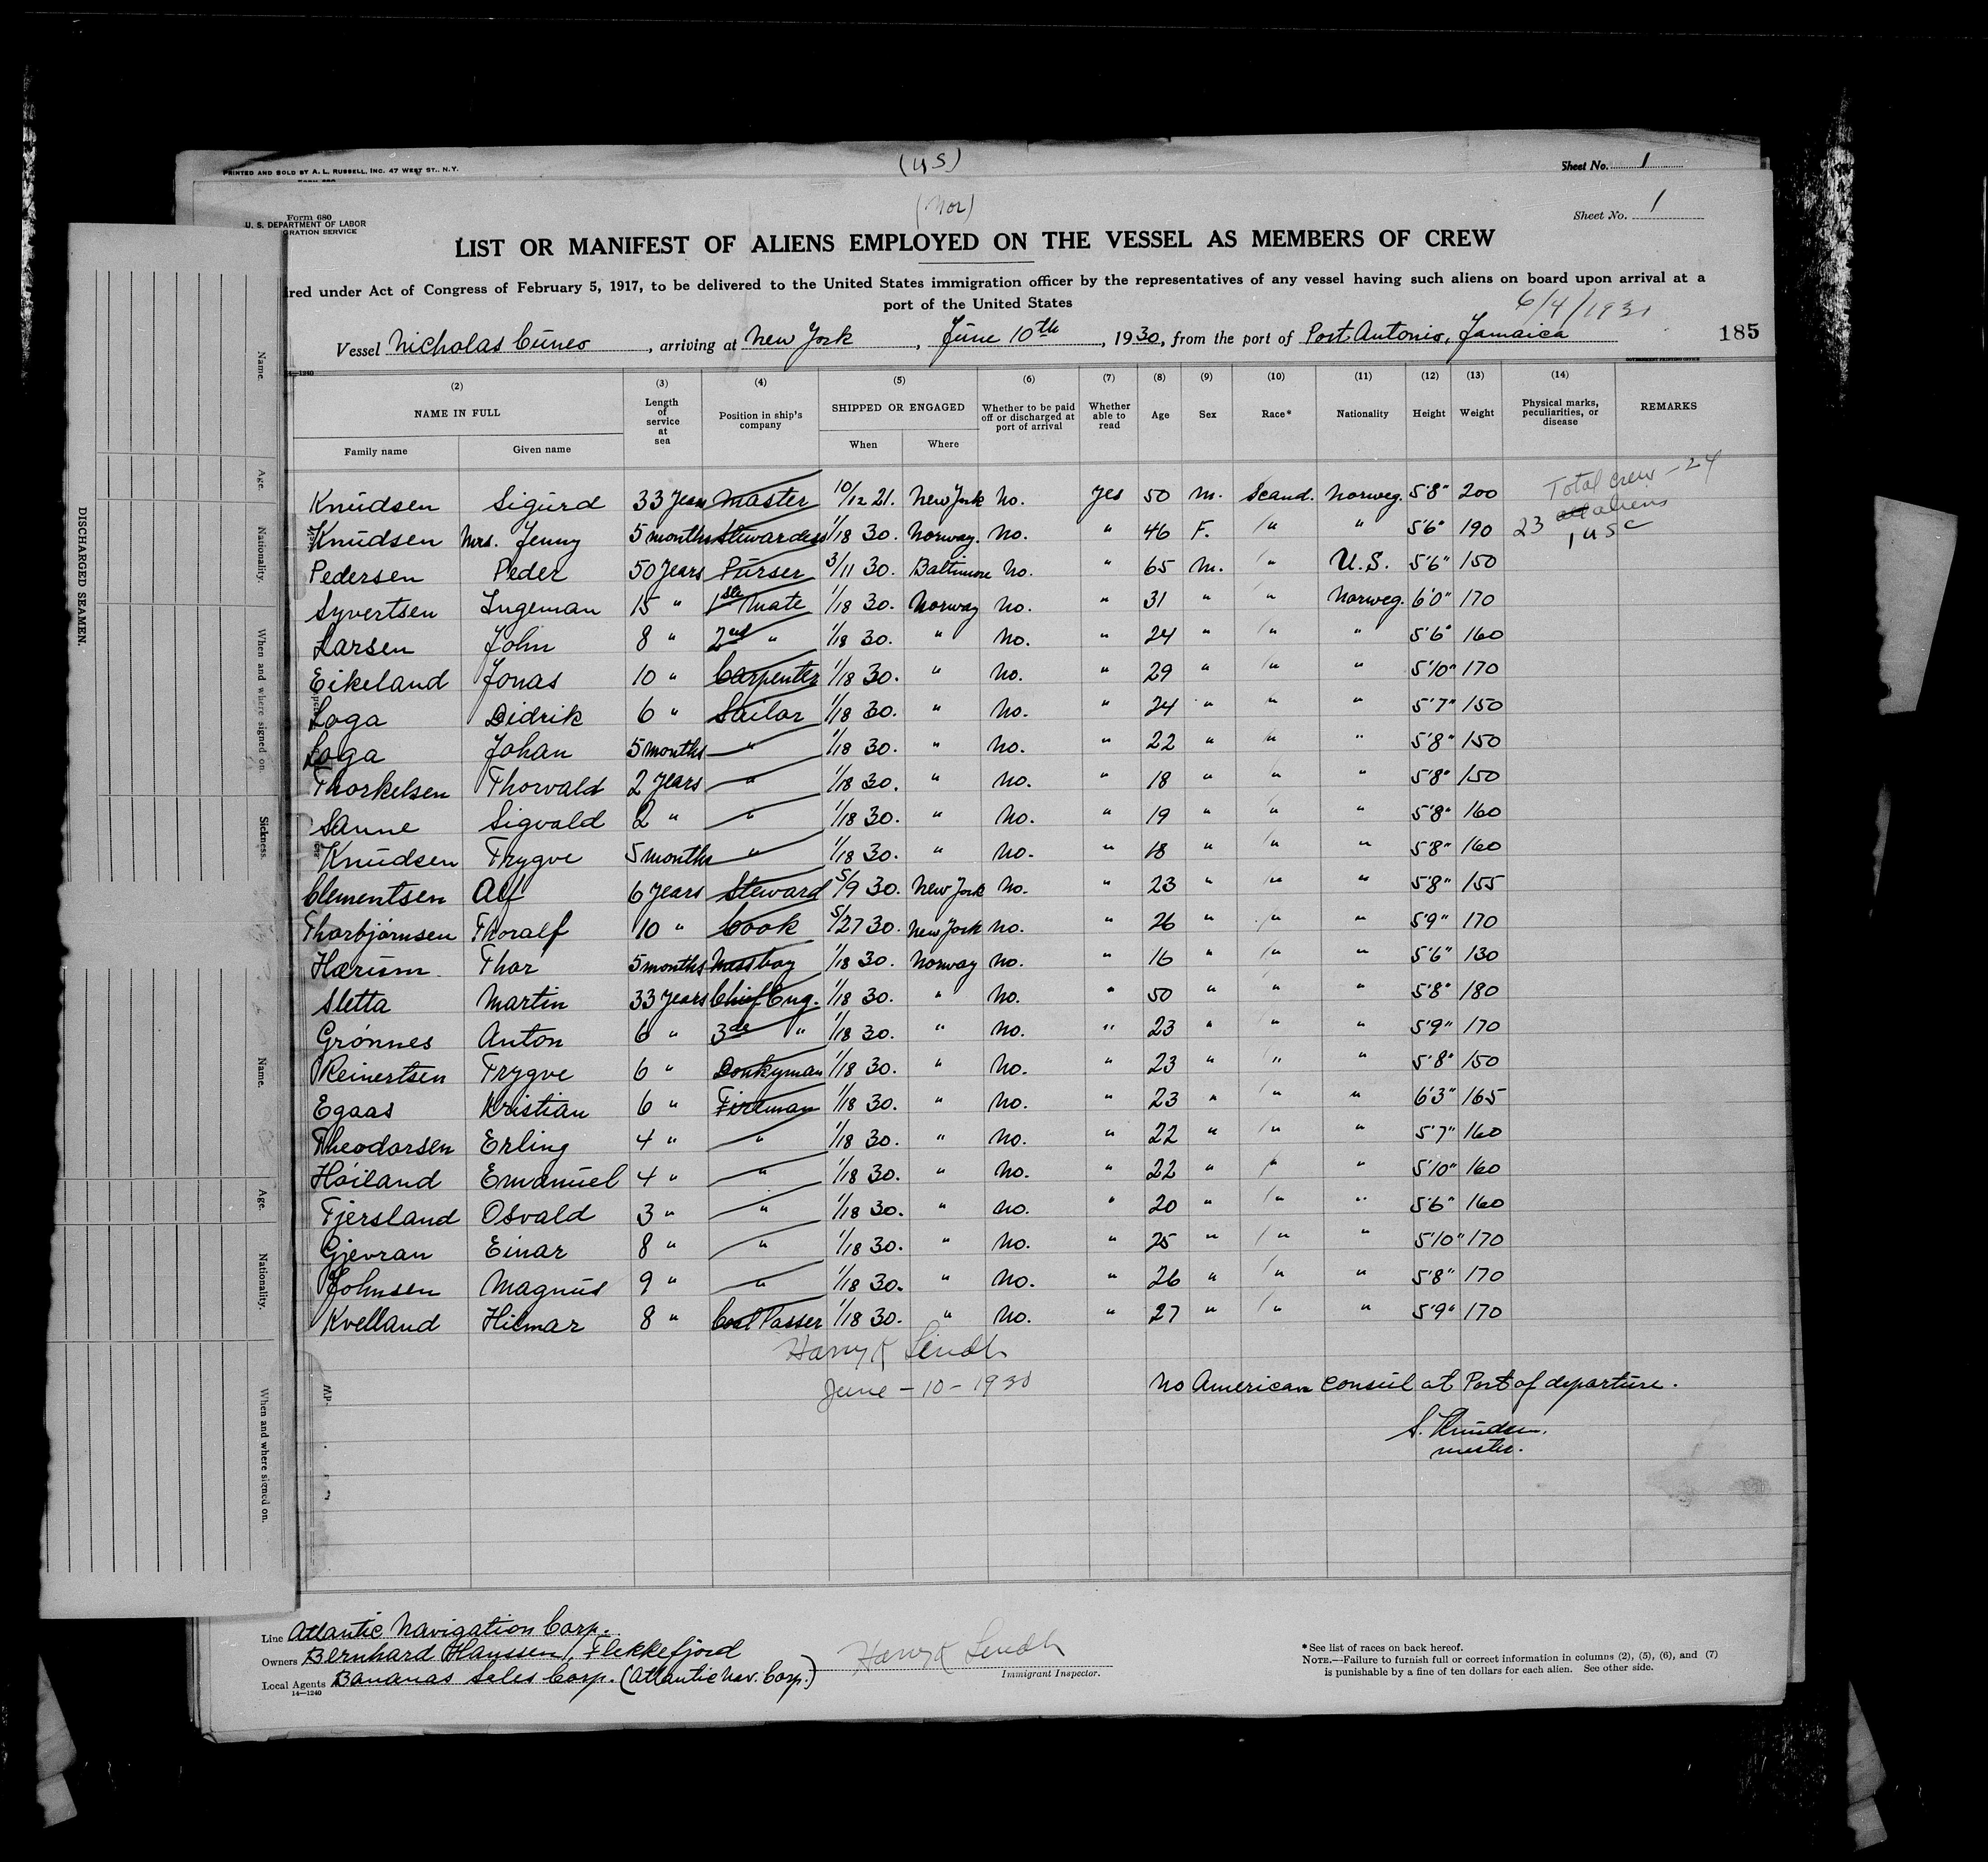 PRINTED AND SOLD BY A. L. RUSSELL, INC. 47 WEST ST., N.Y.
(US)
Sheet No. 1
(Nor)
Sheet No. 1
Form 680
U. S. DEPARTMENT OF LABOR
GRATION SERVICE
LIST OR MANIFEST OF ALIENS EMPLOYED ON THE VESSEL AS MEMBERS OF CREW
ired under Act of Congress of February 5, 1917, to be delivered to the United States immigration officer by the representatives of any vessel having such aliens on board upon arrival at a
port of the United States
6/4/1930
Vessel Nicholas Cuneo, arriving at New York, June 10th, 1930, from the port of Port Antonio, Jamaica
185
(2) (3) (4) (5) (6) (7) (8) (9) (10) (11) (12) (13) (14)
NAME IN FULL Length of service at sea Position in ship's company SHIPPED OR ENGAGED Whether to be paid off or discharged at port of arrival Whether able to read Age Sex Race* Nationality Height Weight Physical marks, peculiarities, or disease REMARKS
Family name Given name When Where
Total crew - 24
23 aliens
1 USC
Knudsen Sigurd 33 years Master 10/12 21. New York No. Yes 50 M. Scand. Norweg. 5'8" 200
Knudsen Mrs. Jenny 5 months Stewardess 1/18 30. Norway. No. " 46 F. " " 5'6" 190
Pedersen Peder 50 years Purser 3/11 30. Baltimore No. " 65 M. " U.S. 5'6" 150
Syvertsen Ingeman 15 " 1ste Mate 1/18 30. Norway No. " 31 " " Norweg. 6'0" 170
Larsen John 8 " 2nd " 1/18 30. " No. " 24 " " " 5'6" 160
Eikeland Jonas 10 " Carpenter 1/18 30. " No. " 29 " " " 5'10" 170
Loga Didrik 6 " Sailor 1/18 30. " No. " 24 " " " 5'7" 150
Loga Johan 5 months " 1/18 30. " No. " 22 " " " 5'8" 150
Thorkelsen Thorvald 2 years " 1/18 30. " No. " 18 " " " 5'8" 150
Sanne Sigvald 2 " " 1/18 30. " No. " 19 " " " 5'8" 160
Knudsen Trygve 5 months " 1/18 30. " No. " 18 " " " 5'8" 160
Clementsen Alf 6 years Steward 5/9 30. New York No. " 23 " " " 5'8" 155
Thorbjørnsen Thoralf 10 " Cook 5/27 30. New York No. " 26 " " " 5'9" 170
Hærum Thor 5 months Messboy 1/18 30. Norway No. " 16 " " " 5'6" 130
Sletta Martin 33 years Chief Eng. 1/18 30. " No. " 50 " " " 5'8" 180
Grønnes Anton 6 " 3de " 1/18 30. " No. " 23 " " " 5'9" 170
Reinertsen Trygve 6 " Donkyman 1/18 30. " No. " 23 " " " 5'8" 150
Egaas Kristian 6 " Fireman 1/18 30. " No. " 23 " " " 6'3" 165
Theodorsen Erling 4 " " 1/18 30. " No. " 22 " " " 5'7" 160
Høiland Emanuel 4 " " 1/18 30. " No. " 22 " " " 5'10" 160
Tjersland Osvald 3 " " 1/18 30. " No. " 20 " " " 5'6" 160
Gjevran Einar 8 " " 1/18 30. " No. " 25 " " " 5'10" 170
Johnsen Magnus 9 " " 1/18 30. " No. " 26 " " " 5'8" 170
Kvelland Hilmar 8 " Coal Passer 1/18 30. " No. " 27 " " " 5'9" 170
Harry K Lindh
June - 10 - 1930
No American Consul at Port of departure.
S. Knudsen,
master.
Line Atlantic Navigation Corp.
Owners Bernhard Hanssen, Flekkefjord
Local Agents Bananas Sales Corp. (Atlantic Nav. Corp.)
14—1240
Harry K Lindh
Immigrant Inspector.
*See list of races on back hereof.
NOTE.—Failure to furnish full or correct information in columns (2), (5), (6), and (7)
is punishable by a fine of ten dollars for each alien. See other side.
DISCHARGED SEAMEN.
Name.
Age.
Nationality.
When and where signed on.
Sickness.
Name.
Age.
Nationality.
When and where signed on.